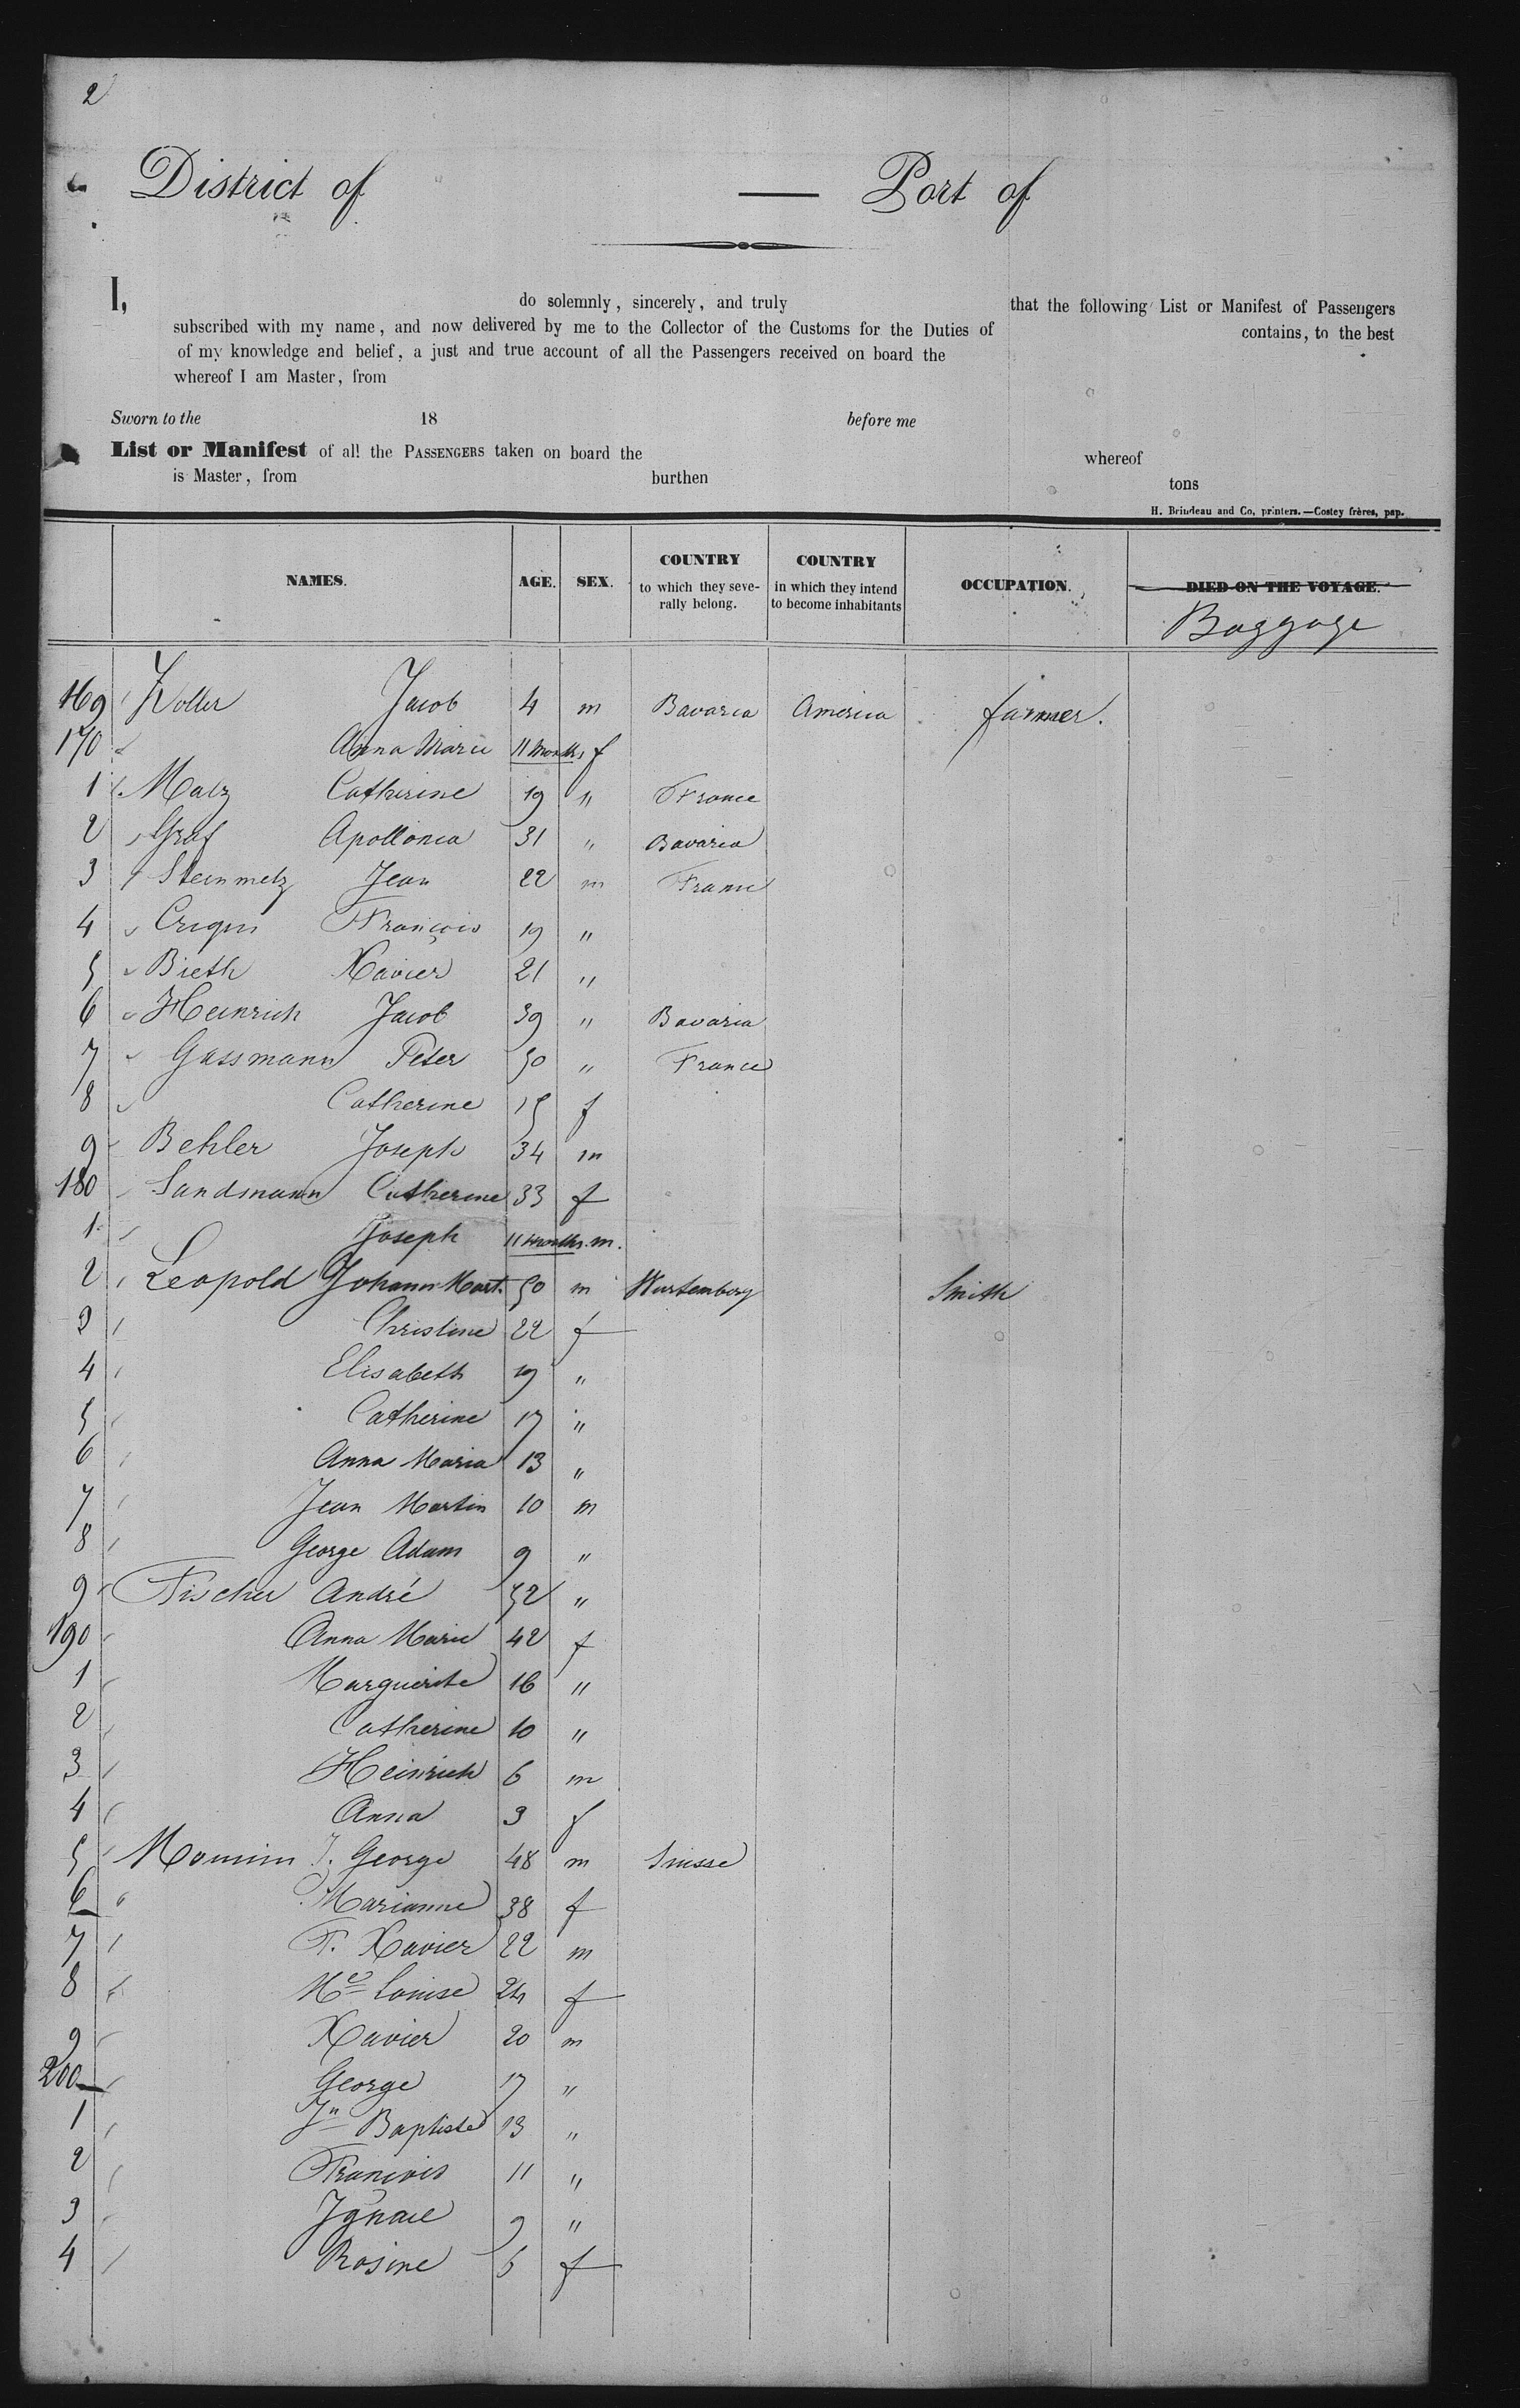 2
District of — Port of
I, do solemnly, sincerely, and truly that the following List or Manifest of Passengers
subscribed with my name, and now delivered by me to the Collector of the Customs for the Duties of contains, to the best
of my knowledge and belief, a just and true account of all the Passengers received on board the
whereof I am Master, from
Sworn to the 18 before me
List or Manifest of all the PASSENGERS taken on board the whereof
is Master, from burthen tons
H. Brindeau and Co, printers.—Costey frères, pap.
NAMES. AGE. SEX. COUNTRY to which they seve- rally belong. COUNTRY in which they intend to become inhabitants OCCUPATION. DIED ON THE VOYAGE.
Baggage
169 Zoller Jacob 4 m Bavaria America farmer.
170 Anna Marie 11 months f
1 Malz Catherine 19 " France
2 Graf Apollonia 31 " Bavaria
3 Steinmetz Jean 22 m France
4 François 19 "
5 Bieth Xavier 21 "
6 Heinrich Jacob 39 " Bavaria
7 Gassmann Peter 50 " France
8 Catherine 15 f
9 Behler Joseph 34 m
180 Sandmann Catherine 33 f
1 Joseph 11 months. m.
2 Leopold Johann Mart. 50 m Wurtemberg Smith
3 Christine 22 f
4 Elisabeth 19 "
5 Catherine 17 "
6 Anna Maria 13 "
7 Jean Martin 10 m
8 George Adam 9 "
9 Fischer André 52 "
190 Anna Marie 42 f
1 Marguerite 16 "
2 Catherine 10 "
3 Heinrich 6 m
4 Anna 3 f
5 J. George 48 m Suisse
6 Marianne 38 f
7 F. Xavier 22 m
8 Me Louise 24 f
9 Xavier 20 m
200 George 17 "
1 Jn Baptiste 13 "
2 François 11 "
3 Ignace 9 "
4 Rosine 6 f